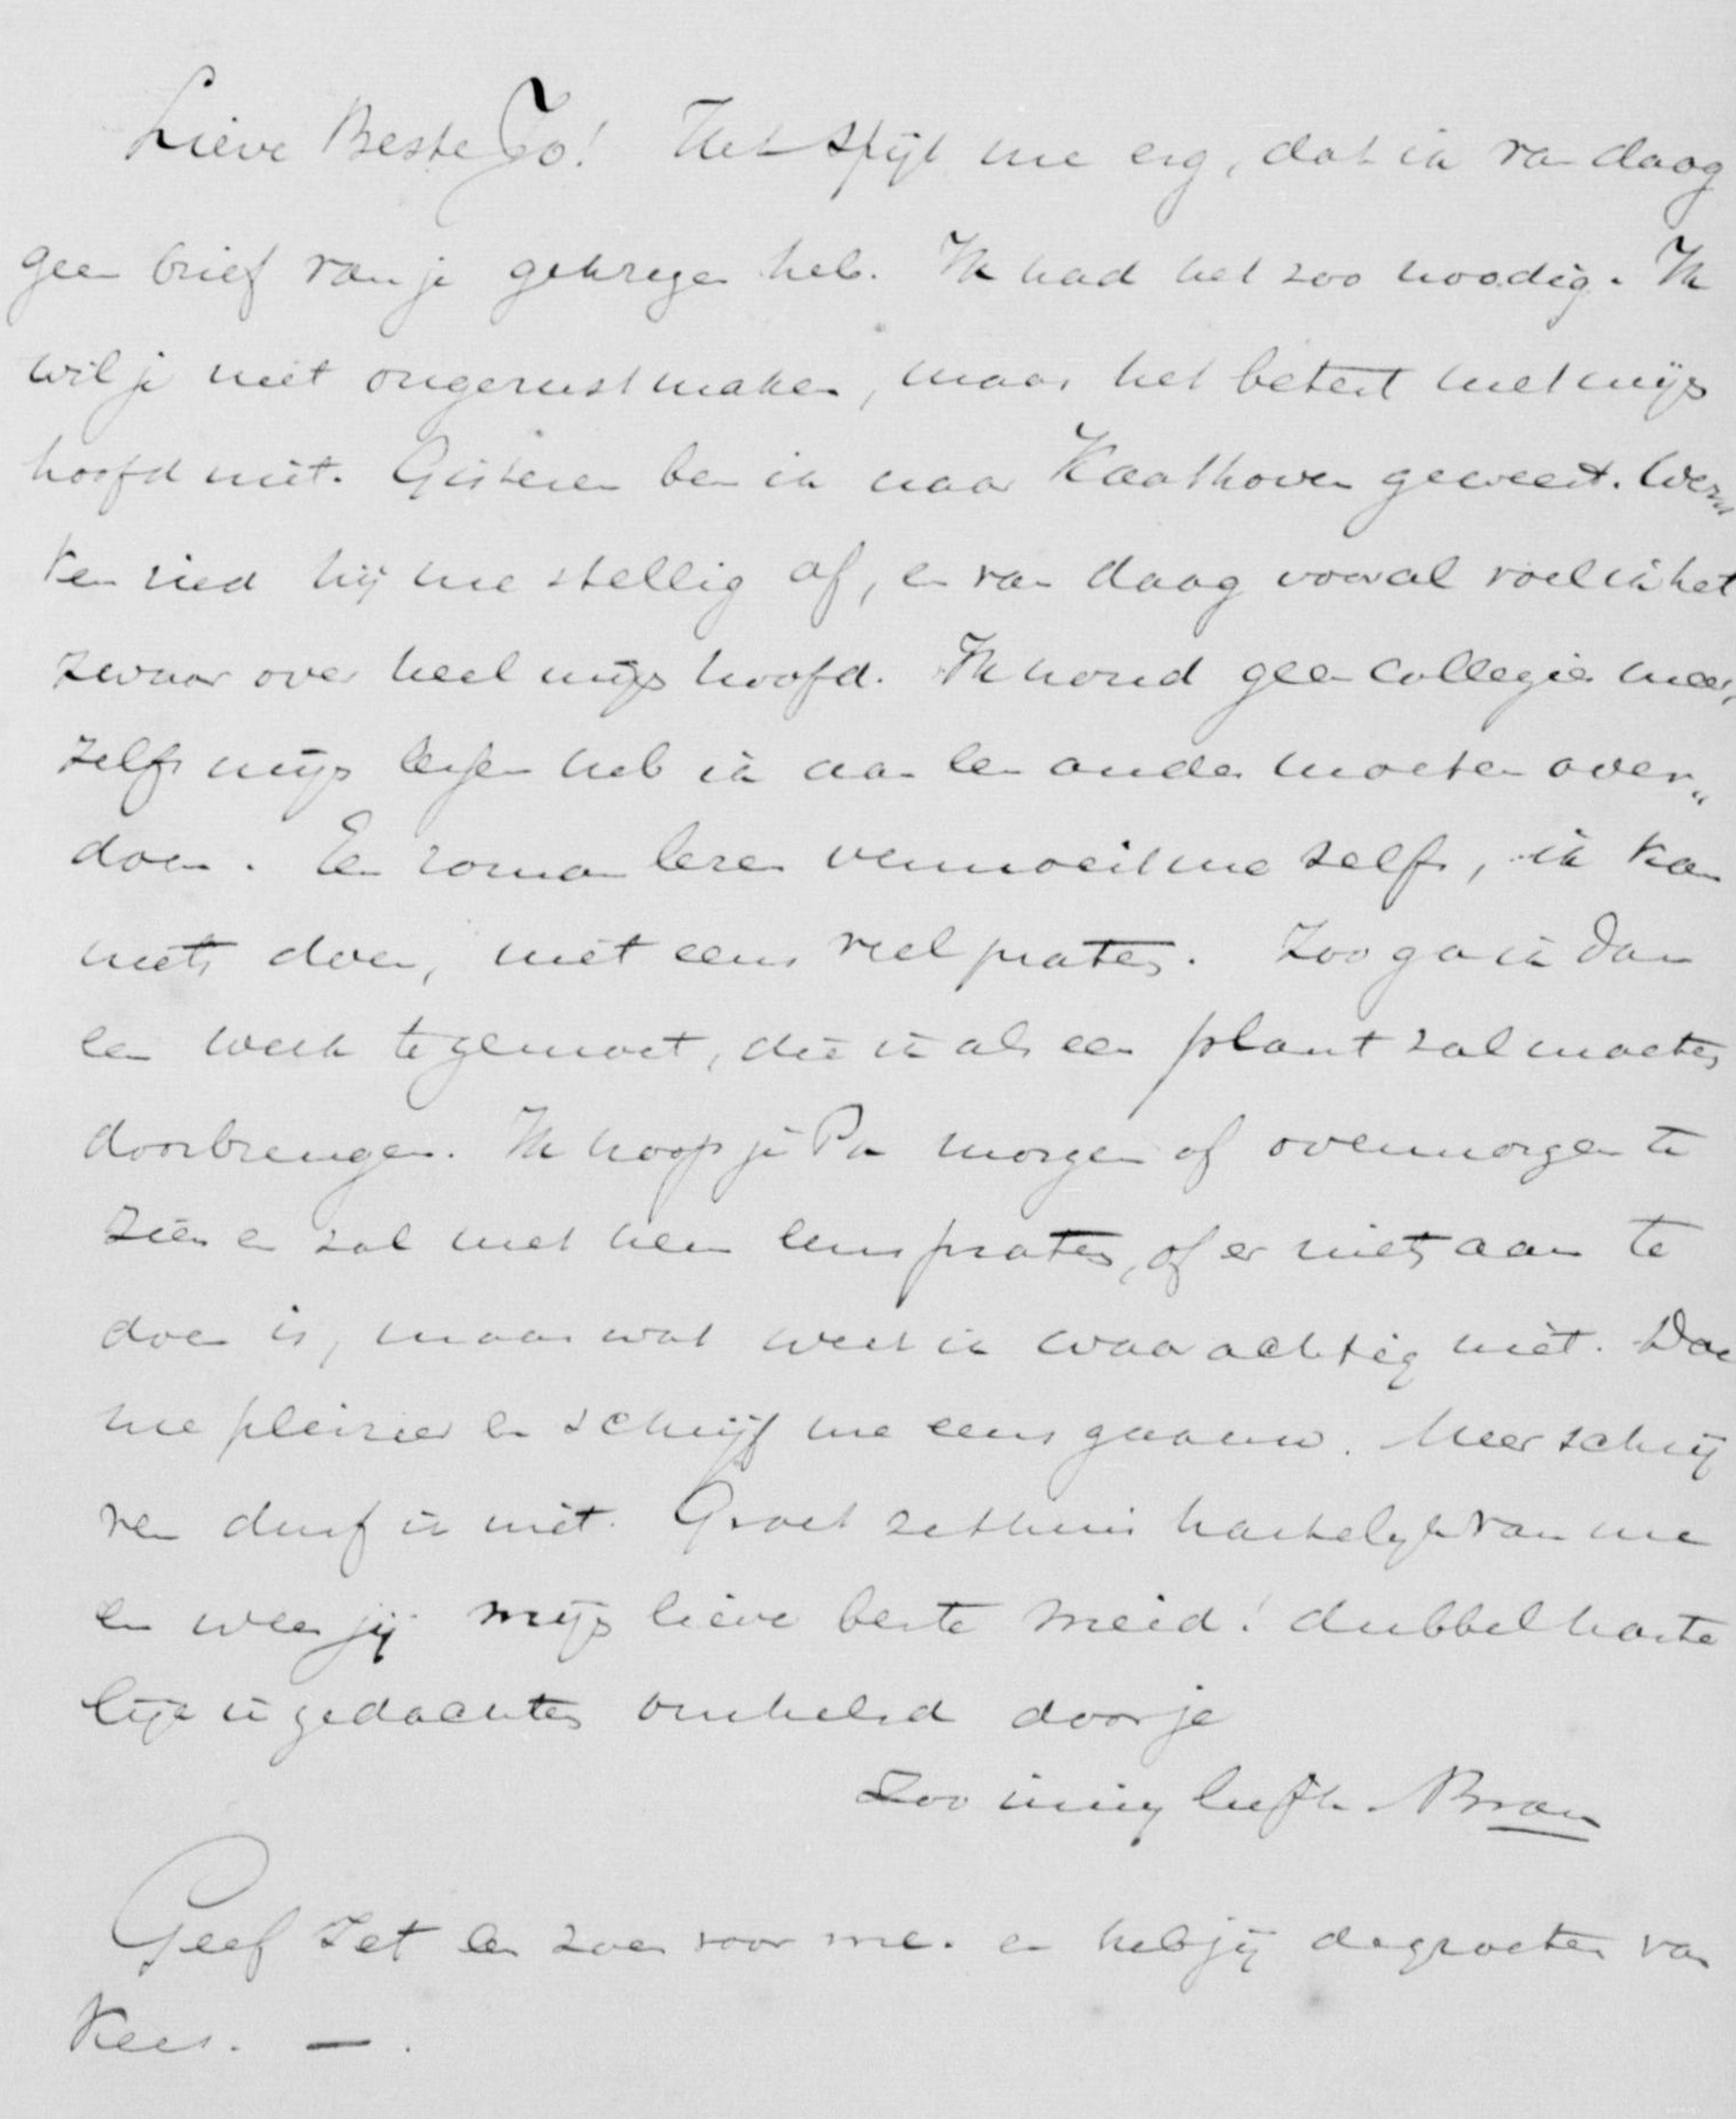 Lieve Beste Jo! Het spijt me erg, dat ik van daag
geen brief van je gekregen heb. Ik had het zoo noodig. Ik
wil je niet ongerust maken, maar het betert met mijn
hoofd niet. Gisteren ben ik naar Kaathoven geweest. Wer„
ken ried hij me stellig af, en van daag vooral voel ik het
zwaar over heel mijn hoofd. Ik houd geen collegie meer,
zelfs mijn lessen heb ik aan een ander moeten over„
doen. Een roman lezen vermoeit me zelfs, ik kan
niets doen, niet eens veel praten. Zoo ga ik dan
een week tegemoet, die ik als een plant zal moeten
doorbrengen. Ik hoop je Pa morgen of overmorgen te
zien en zal met hem eens praten, of er niets aan te
doen is, maar wat weet ik waarachtig niet. Doe
me pleizier en schrijf me eens gaauw. Meer schrij
ven durf ik niet. Groet hartelijk van me
en wees jij mijn lieve beste meid! dubbel harte
lijk in gedachten omhelsd door je
Zoo innig liefh. Bram
Geef Jet een zoen voor me. en heb jij de groeten van
Kees. — .